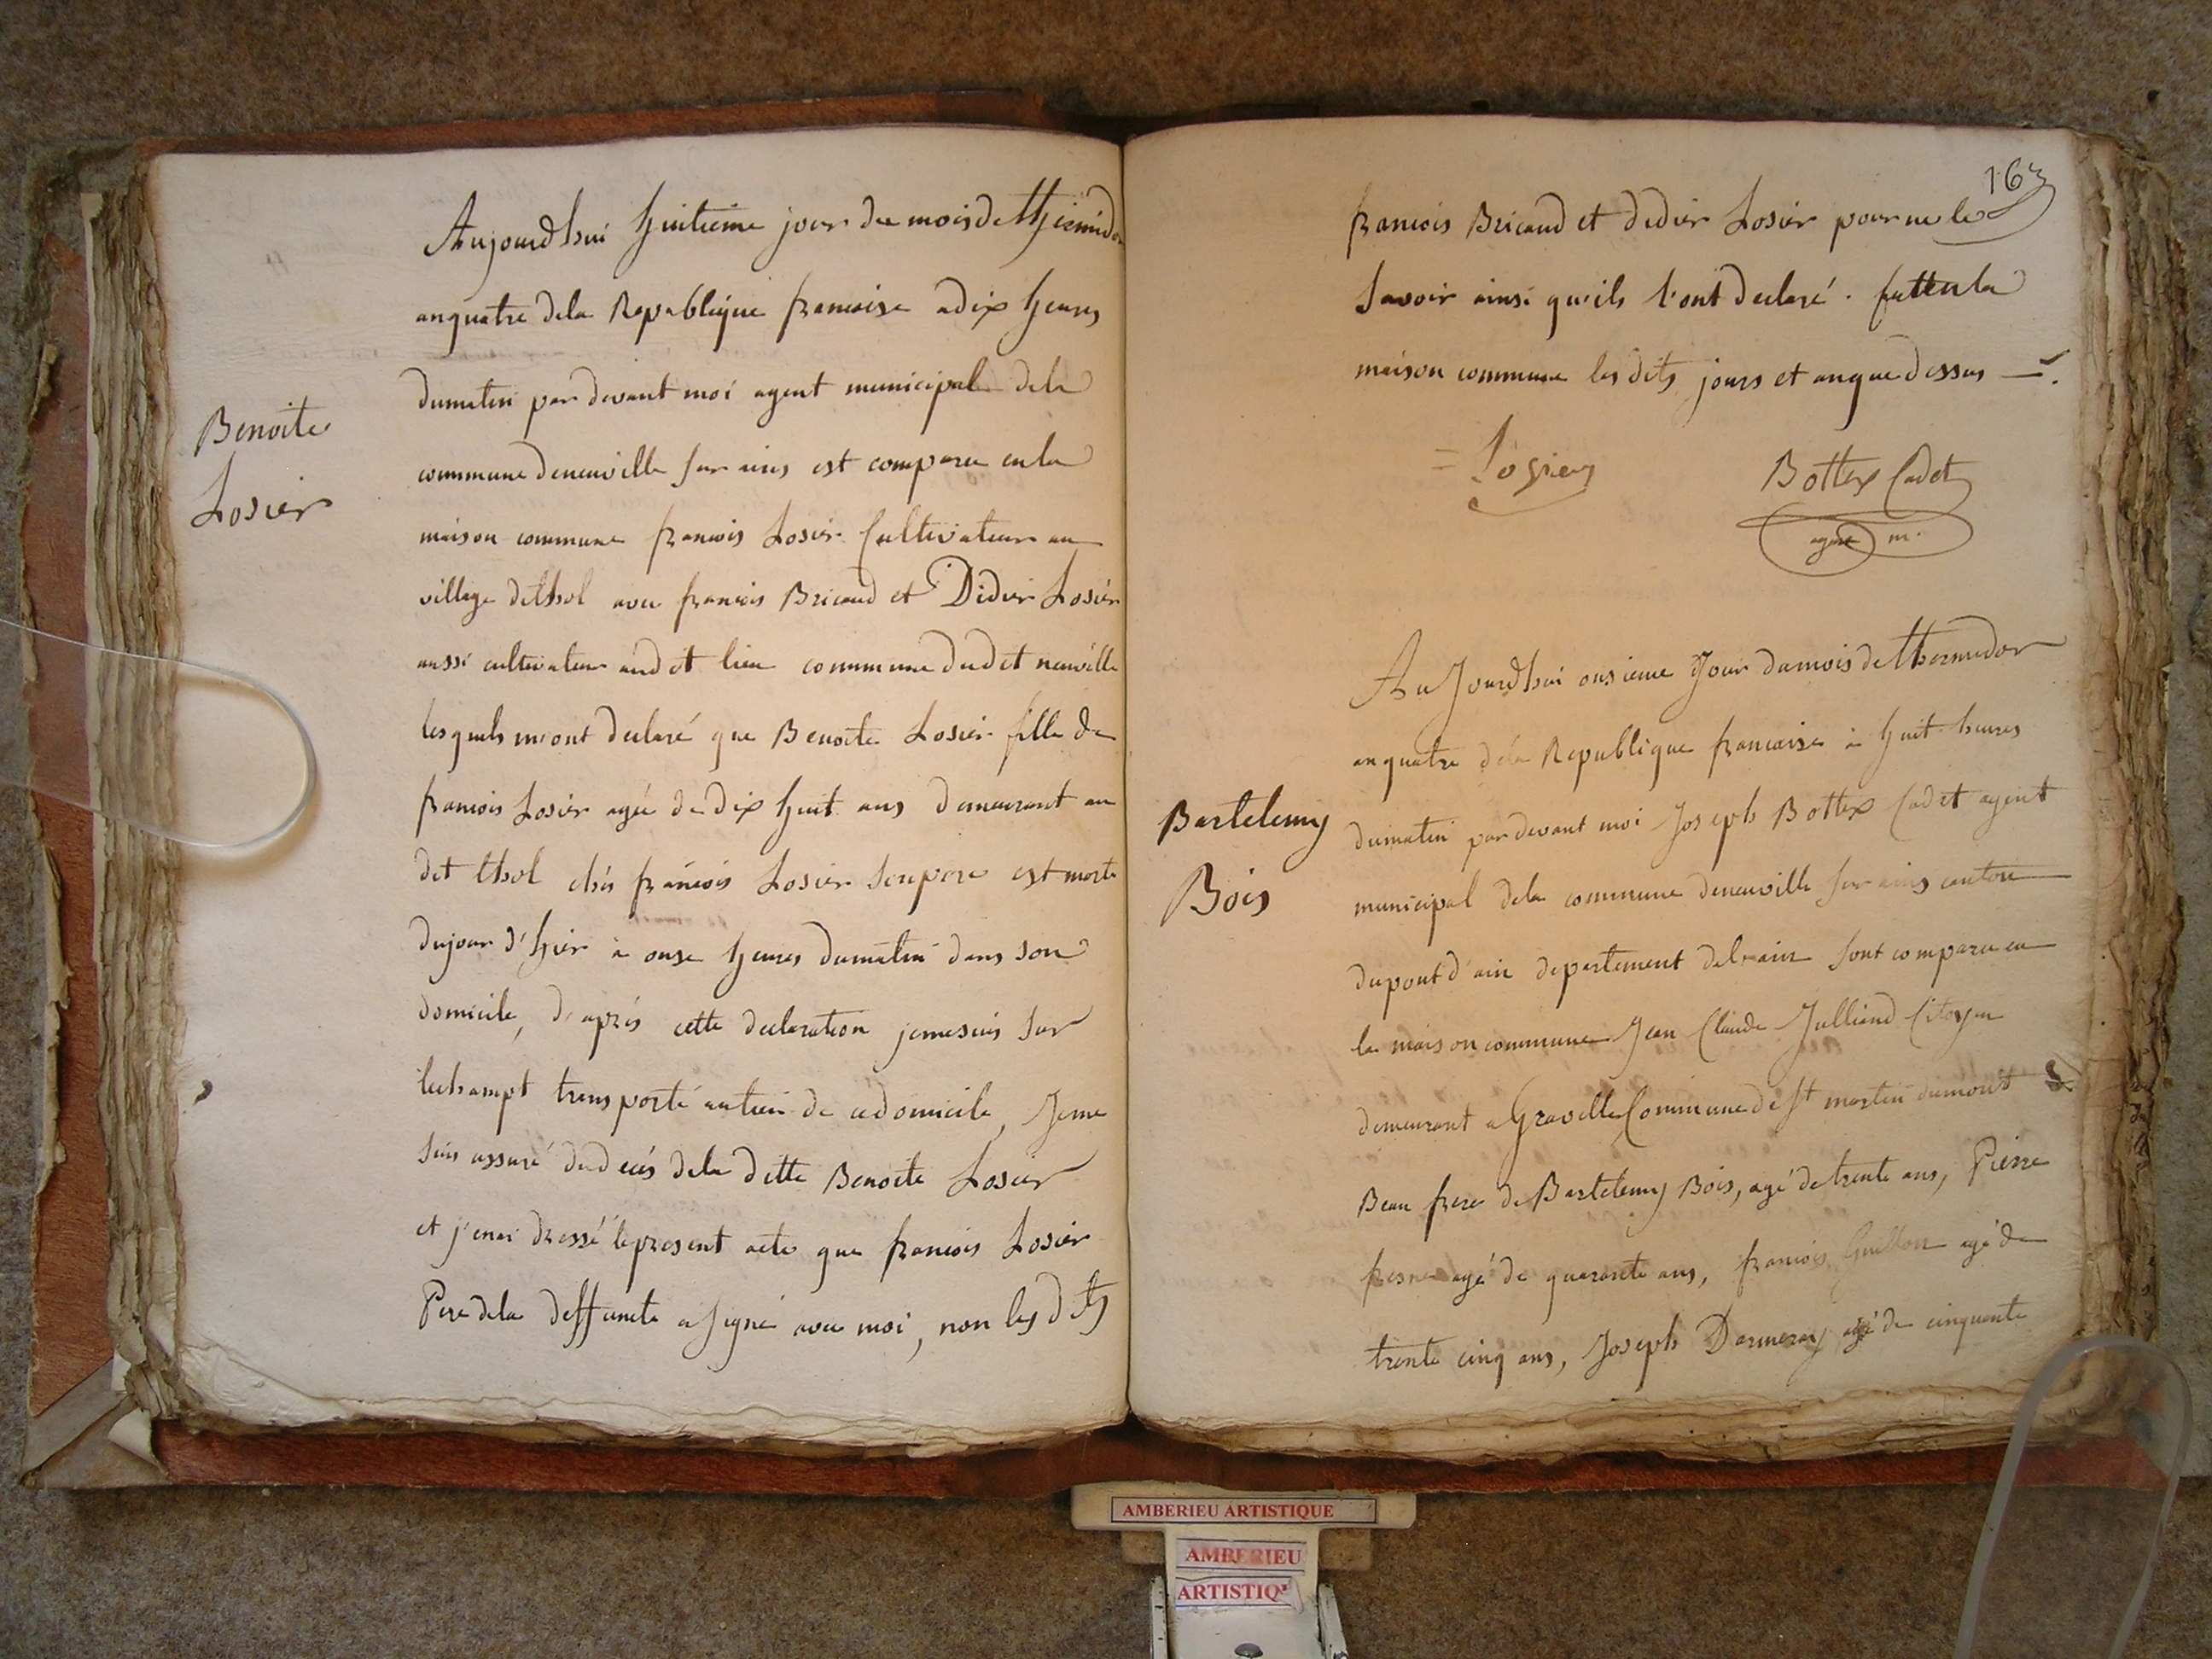 Benoite
Losier
Aujourdhui huitieme jour du mois de thermidor
anquatre dela Republique francoise adix heures
dumatin par devant moi agent municipal dela
commune deneuville sur ains est comparu enla
maison commune francois Losier Cultivateur au
village dethol avec francois Bricaud et Didier Losier
aussi cultivateur audit lieu commune dudit neuville
lesquels mont declaré que Benoite Losier fille de
francois Losier agée de dix huit ans demeurant au
dit thol chés francois Losier sonpere est morte
dujour d'hier à onse heures dumatin dans son
domicile, d'aprés cette declaration jemesuis sur
lechampt transporté aulieu de cedomicile, Jeme
suis assuré dudecés dela ditte Benoite Losier
et j'enai dressé lepresent acte que francois Losier
Pere dela deffuncte asigné avec moi, non les dits
163
francois Bricaud et didier Losier pour ne le
savoir ainsi qu'ils l'ont declaré. fait enla
maison commune les dits jours et anque dessus
= Losier
Bottex Cadet
agent m.
Bartelemy
Bois
AuJourdhui onsieme Jour dumois dethermidor
anquatre dela Republique francaise à huit heures
dumatin par devant moi Joseph Bottex Cadet agent
municipal dela commune deneuville sur ains canton
dupont d'ain departement delain sont comparu en
la maison commune Jean Claude Julliand Citoyen
demeurant a Gravelle Commune de St martin dumont
Beau frere de Bartelemy Bois, agé detrente ans, Pierre
fresne agé de quarante ans, francois Guillon agé de
trente cinq ans, Joseph Darmeray agé de cinquante
AMBERIEU ARTISTIQUE
AMBERIEU
ARTISTIQ